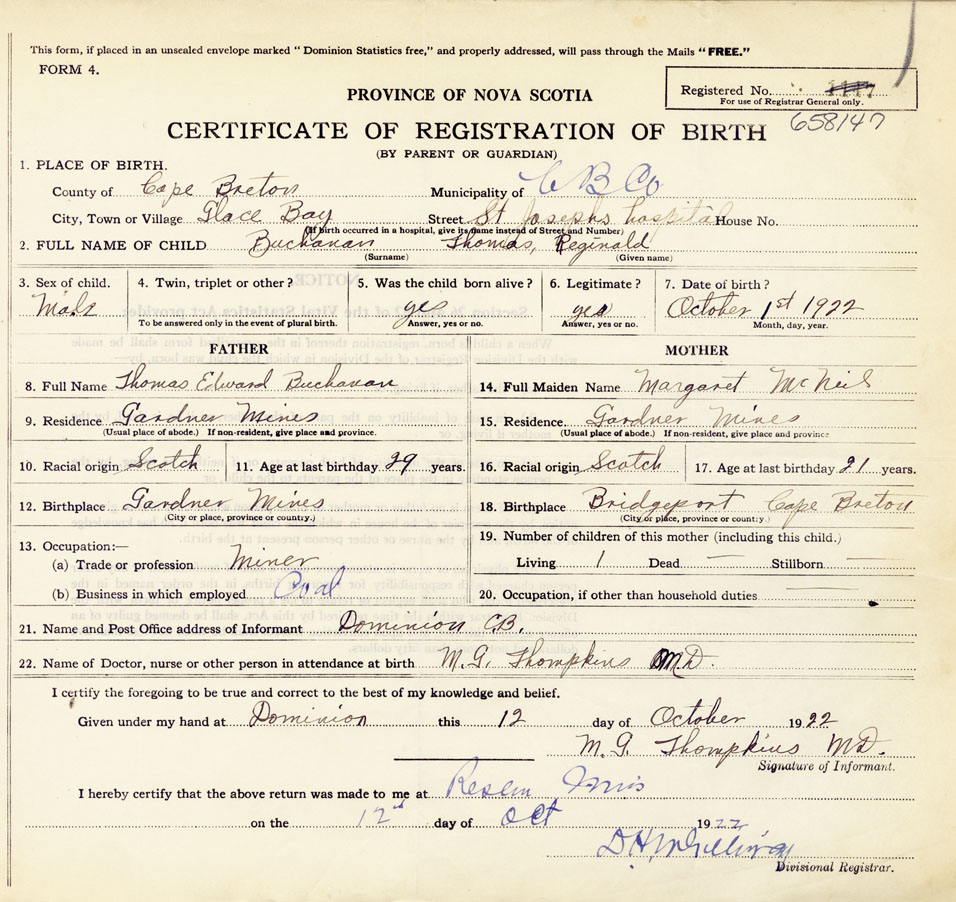 This form, if placed in an unsealed envelope marked "Dominion Statistics free," and properly addressed, will pass through the Mails "FREE."
FORM 4.
Registered No. 1147
For use of Registrar General only.
658147
PROVINCE OF NOVA SCOTIA
CERTIFICATE OF REGISTRATION OF BIRTH
(BY PARENT OR GUARDIAN)
1. PLACE OF BIRTH.
County of Cape Breton Municipality of C B Co
City, Town or Village Glace Bay Street St Josephs hospital House No.
(If birth occurred in a hospital, give its name instead of Street and Number)
2. FULL NAME OF CHILD Buchanan Thomas, Reginald
(Surname) (Given name)
3. Sex of child. 4. Twin, triplet or other? 5. Was the child born alive? 6. Legitimate? 7. Date of birth?
Male yes yes October 1st 1922
To be answered only in the event of plural birth. Answer, yes or no. Answer, yes or no. Month, day, year.
FATHER MOTHER
8. Full Name Thomas Edward Buchanan 14. Full Maiden Name Margaret McNeil
9. Residence Gardner Mines 15. Residence Gardner Mines
(Usual place of abode.) If non-resident, give place and province. (Usual place of abode.) If non-resident, give place and province
10. Racial origin Scotch 11. Age at last birthday 29 years. 16. Racial origin Scotch 17. Age at last birthday 21 years.
12. Birthplace Gardner Mines 18. Birthplace Bridgeport Cape Breton
(City or place, province or country.) (City or place, province or country.)
13. Occupation:— 19. Number of children of this mother (including this child.)
(a) Trade or profession Miner Living 1 Dead — Stillborn —
(b) Business in which employed Coal 20. Occupation, if other than household duties
21. Name and Post Office address of Informant Dominion C.B.
22. Name of Doctor, nurse or other person in attendance at birth M. G. Thompkins M.D.
I certify the foregoing to be true and correct to the best of my knowledge and belief.
Given under my hand at Dominion this 12 day of October 1922
M. G. Thompkins MD.
Signature of Informant.
I hereby certify that the above return was made to me at Reserve Mines
on the 12 day of Oct 1922
D H McGillivray
Divisional Registrar.